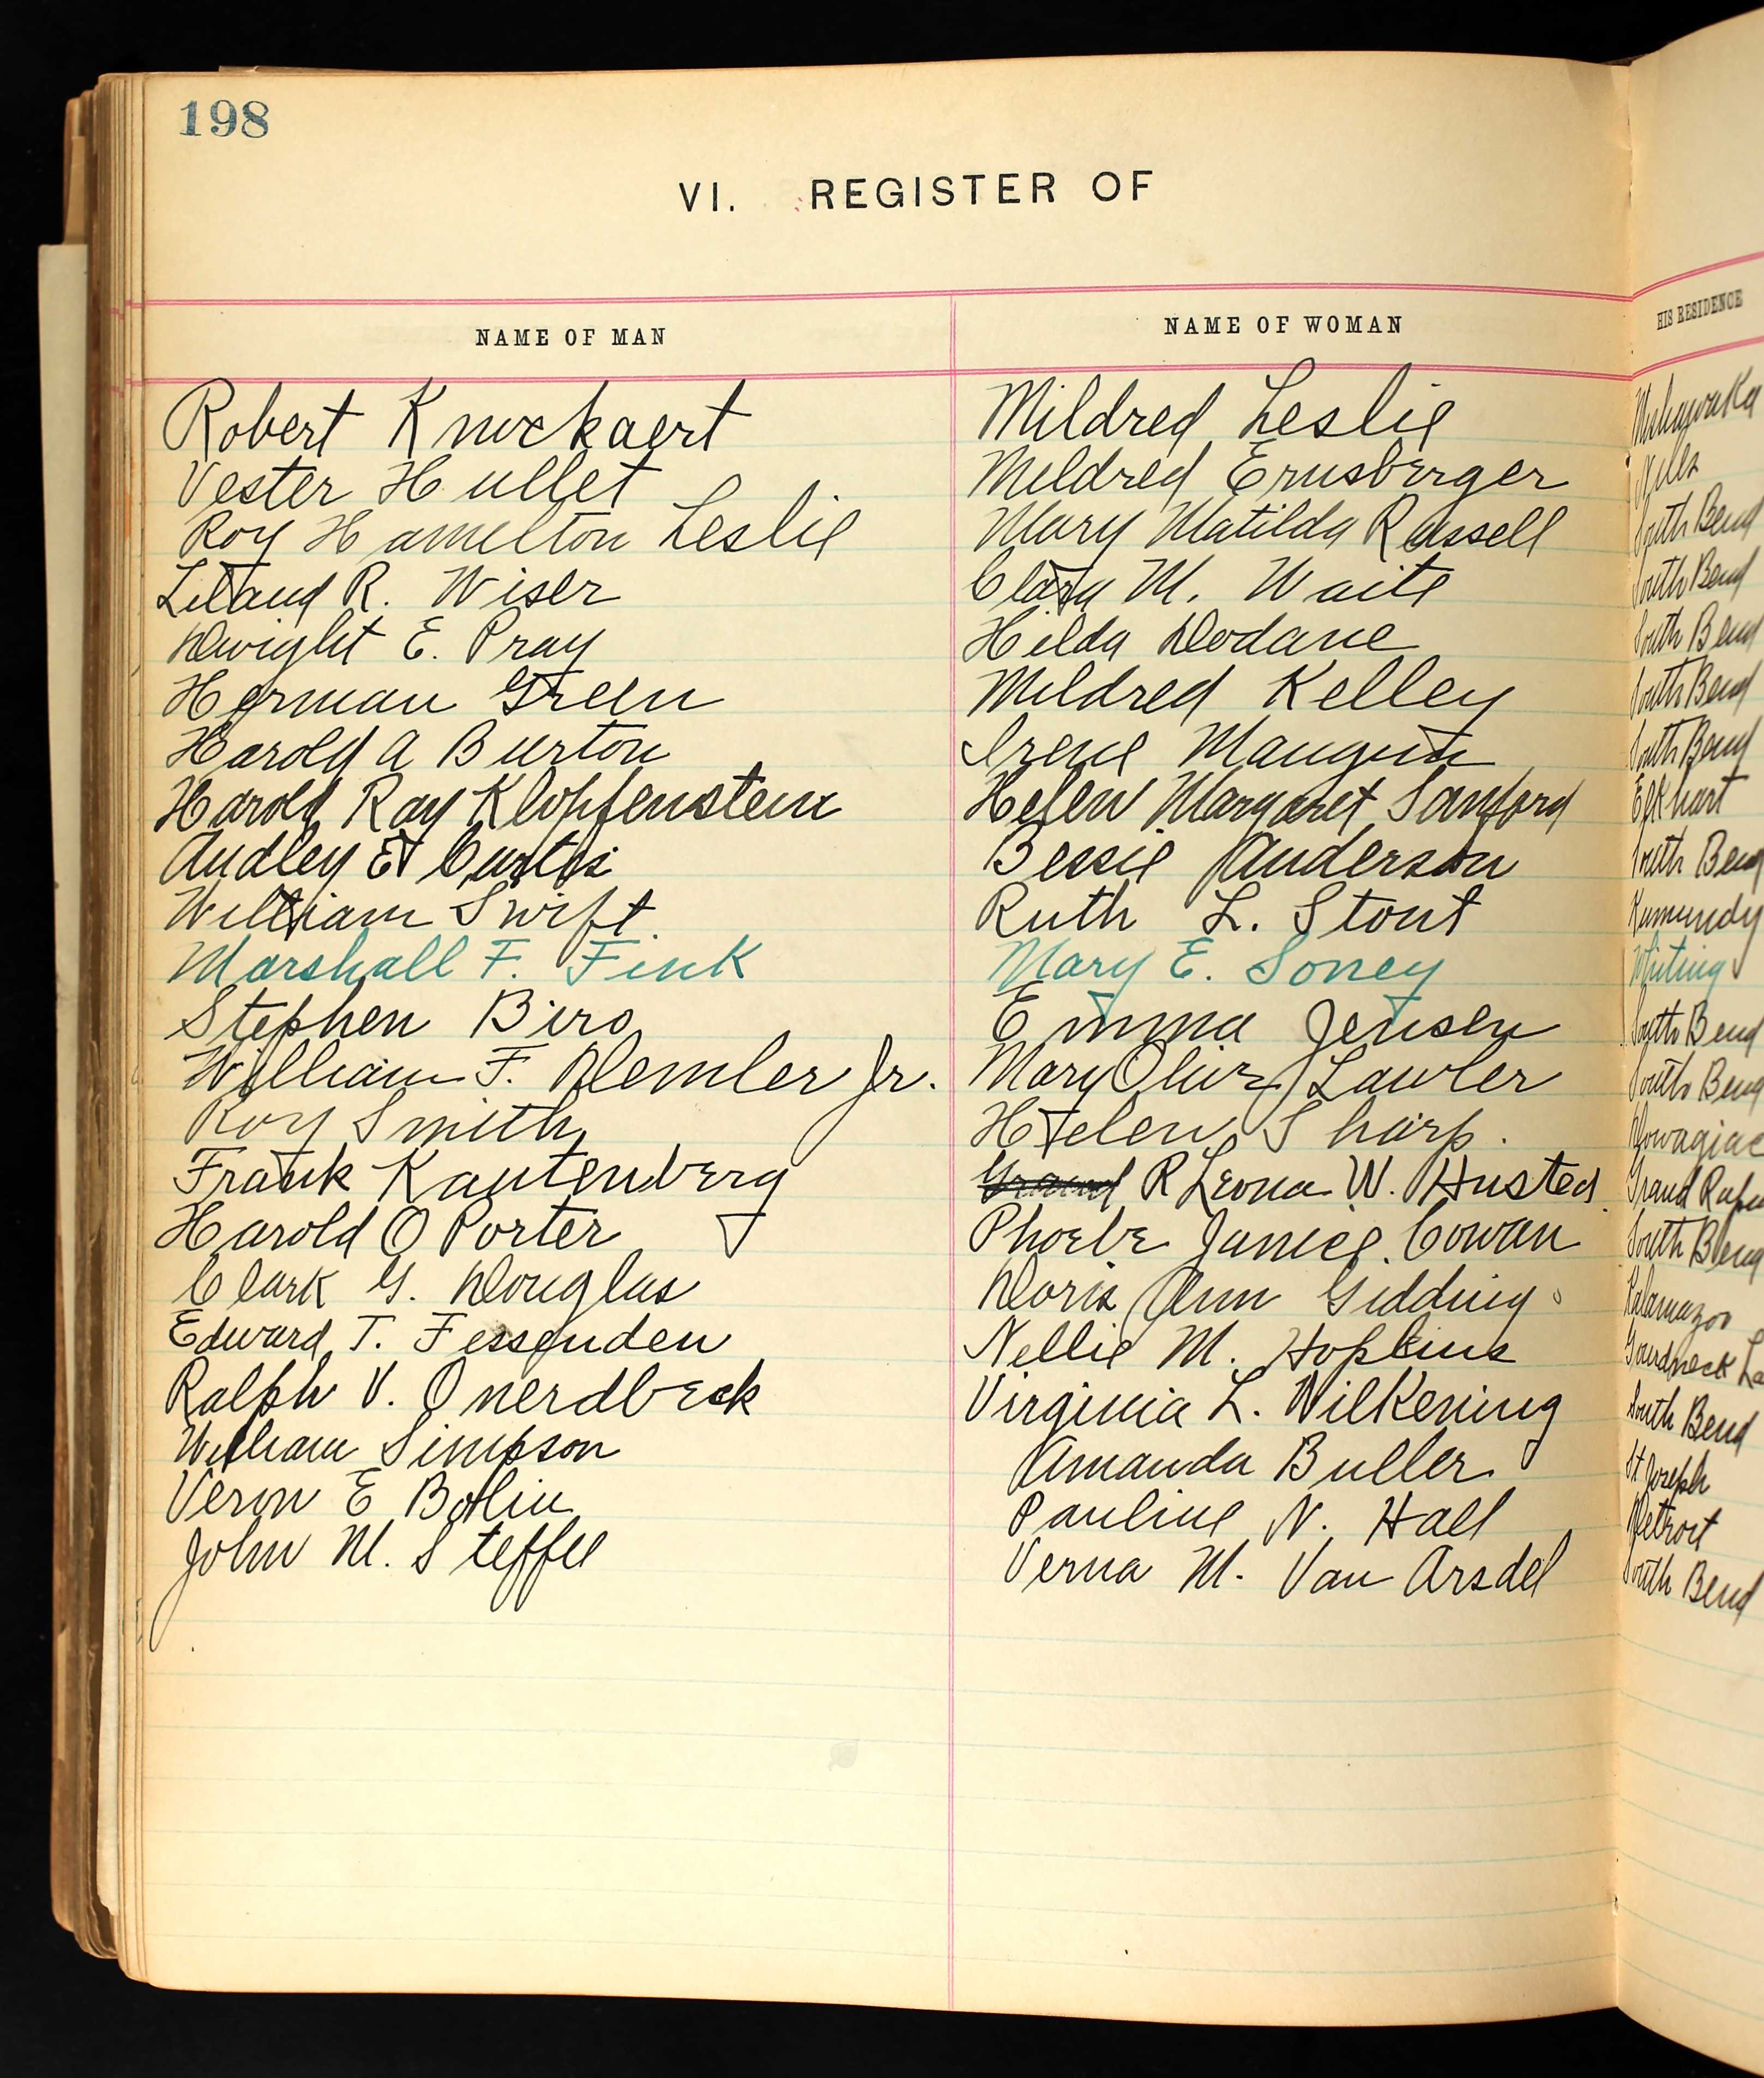 198
VI. REGISTER OF
NAME OF MAN NAME OF WOMAN HIS RESIDENCE
Robert Knockaert Mildred Leslie Mishawaka
Vester Hullet Mildred Ernsberger Niles
Roy Hamelton Leslie Mary Matilda Russell South Bend
Leland R. Wiser Clara M. Waite South Bend
Dwight E. Pray Hilda Dodane South Bend
Herman Green Mildred Kelley South Bend
Harold A Burton Irene Mangun South Bend
Harold Ray Klopfenstein Helen Margaret Sanford Elkhart
Audley E Curtis Bessie Anderson South Bend
William Swift Ruth L. Stout
Marshall F. Fink Mary E. Soney Whiting
Stephen Biro Emma Jensen South Bend
William F. Demler Jr. Mary Olive Lawler South Bend
Roy Smith Helen Sharp. Dowagiac
Frank Kautenberg R Leona W. Husted Grand
Harold O Porter Phoebe Janice Cowan South Bend
Clark G. Douglas Doris Ann Giddings Kalamazoo
Edward T. Fessenden Nellie M. Hopkins Gourdneck La
Ralph V. Onerdbeck Virginia L. Wilkening South Bend
William Simpson Amanda Buller St Joseph
Vern E Bolin Pauline N. Hall Detroit
John M. Steffee Verna M. Van Arsdel South Bend